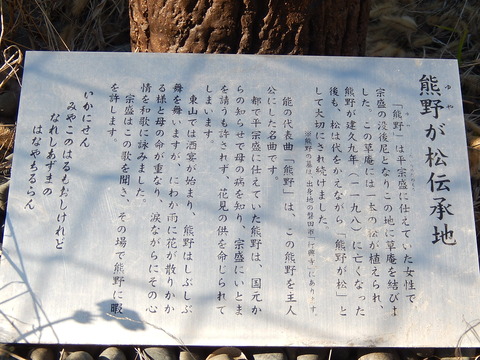 熊野が松伝承地
ゆや
「熊野」は平宗盛に仕えていた女性で
宗盛の没後尼となりこの地に草庵を結びま
した。この草庵には一本の松が植えられ、
熊野が建久九年（一一九八）に亡くなった
後も、松は代をかえながら「熊野が松」と
して大切にされ続けました。
※熊野の墓は、出身地の磐田市「行興寺」にあります。
能の代表曲「熊野」は、この熊野を主人
公にした名曲です。
都で平宗盛に仕えていた熊野は、国元か
らの知らせで母の病を知り、宗盛にいとま
を請うも許されず、花見の供を命じられて
しまいます。
東山では酒宴が始まり、熊野はしぶしぶ
舞を舞いますが、にわか雨に花が散りかか
る様と母の命が重なり、涙ながらにその心
情を和歌に詠みました。
宗盛はこの歌を聞き、その場で熊野に暇
を許します。
いかにせん
みやこのはるもおしけれど
なれしあずまの
はなやちるらん